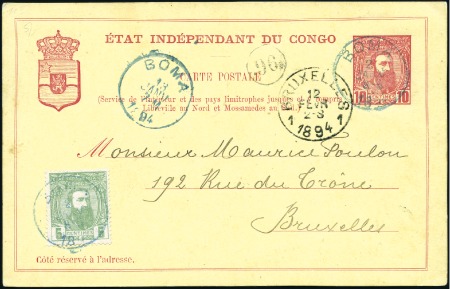 ÉTAT INDÉPENDANT DU CONGO
CARTE POSTALE
(Service de l'intérieur et des pays limitrophes jusqu'à et y compris
Libreville au Nord et Mossamedes au
BOMA
13
JANV
94
96
BRUXELLES
12
FEVR
2-S
1 1894 1
10 10
Monsieur Maurice Soulon
192 Rue du Trône
Bruxelles
5 5
Côté réservé à l'adresse.